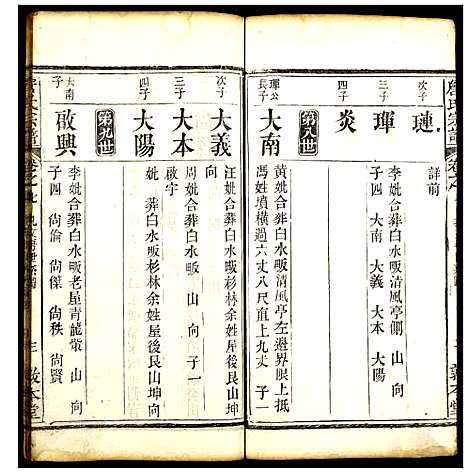 次子
璉
詳前
三子
琿
李妣合葬白水畈清風亭側 山 向
子四 大南 大義 大本 大陽
四子
炎
第八世
琿公長子
大南
黄妣合葬白水畈清風亭左邊界限上抵
馮姓墳橫過六丈八尺直上九丈 子一
次子
大義
汪妣合葬白水畈杉林余姓屋後艮山坤
向
三子
大本
周妣合葬白水畈 山 向 子一
啟宇
四子
大陽
姚妣 葬白水畈杉林余姓屋後艮山坤
向
第九世
大南子
啟興
李妣合葬白水畈老屋青龍 山 向
子四 尚倫 尚傑 尚秩 尚賢
氏宗譜
敦本堂